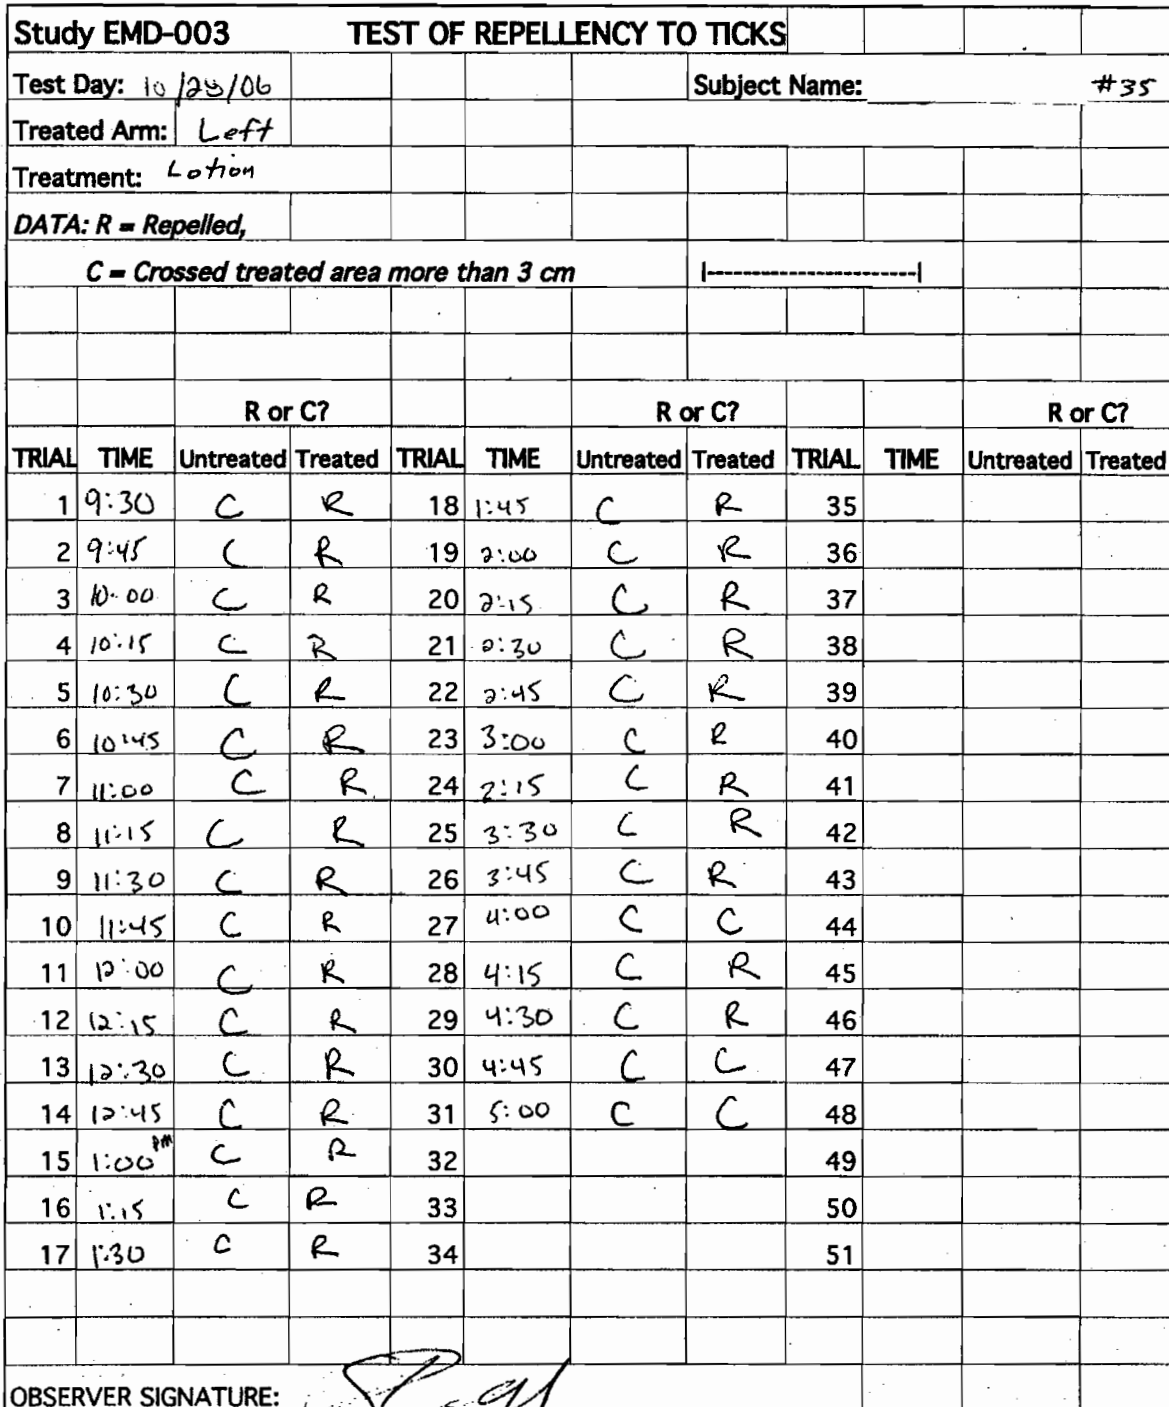 Study EMD-003 TEST OF REPELLENCY TO TICKS
Test Day: 10/28/06 Subject Name: #35
Treated Arm: Left
Treatment: Lotion
DATA: R = Repelled,
C = Crossed treated area more than 3 cm |-----------------------|
R or C? R or C? R or C?
TRIAL TIME Untreated Treated TRIAL TIME Untreated Treated TRIAL TIME Untreated Treated
1 9:30 C R 18 1:45 C R 35
2 9:45 C R 19 2:00 C R 36
3 10:00 C R 20 2:15 C R 37
4 10:15 C R 21 2:30 C R 38
5 10:30 C R 22 2:45 C R 39
6 10:45 C R 23 3:00 C R 40
7 11:00 C R 24 2:15 C R 41
8 11:15 C R 25 3:30 C R 42
9 11:30 C R 26 3:45 C R 43
10 11:45 C R 27 4:00 C C 44
11 12:00 C R 28 4:15 C R 45
12 12:15 C R 29 4:30 C R 46
13 12:30 C R 30 4:45 C C 47
14 12:45 C R 31 5:00 C C 48
15 1:00 PM C R 32 49
16 1:15 C R 33 50
17 1:30 C R 34 51
OBSERVER SIGNATURE: